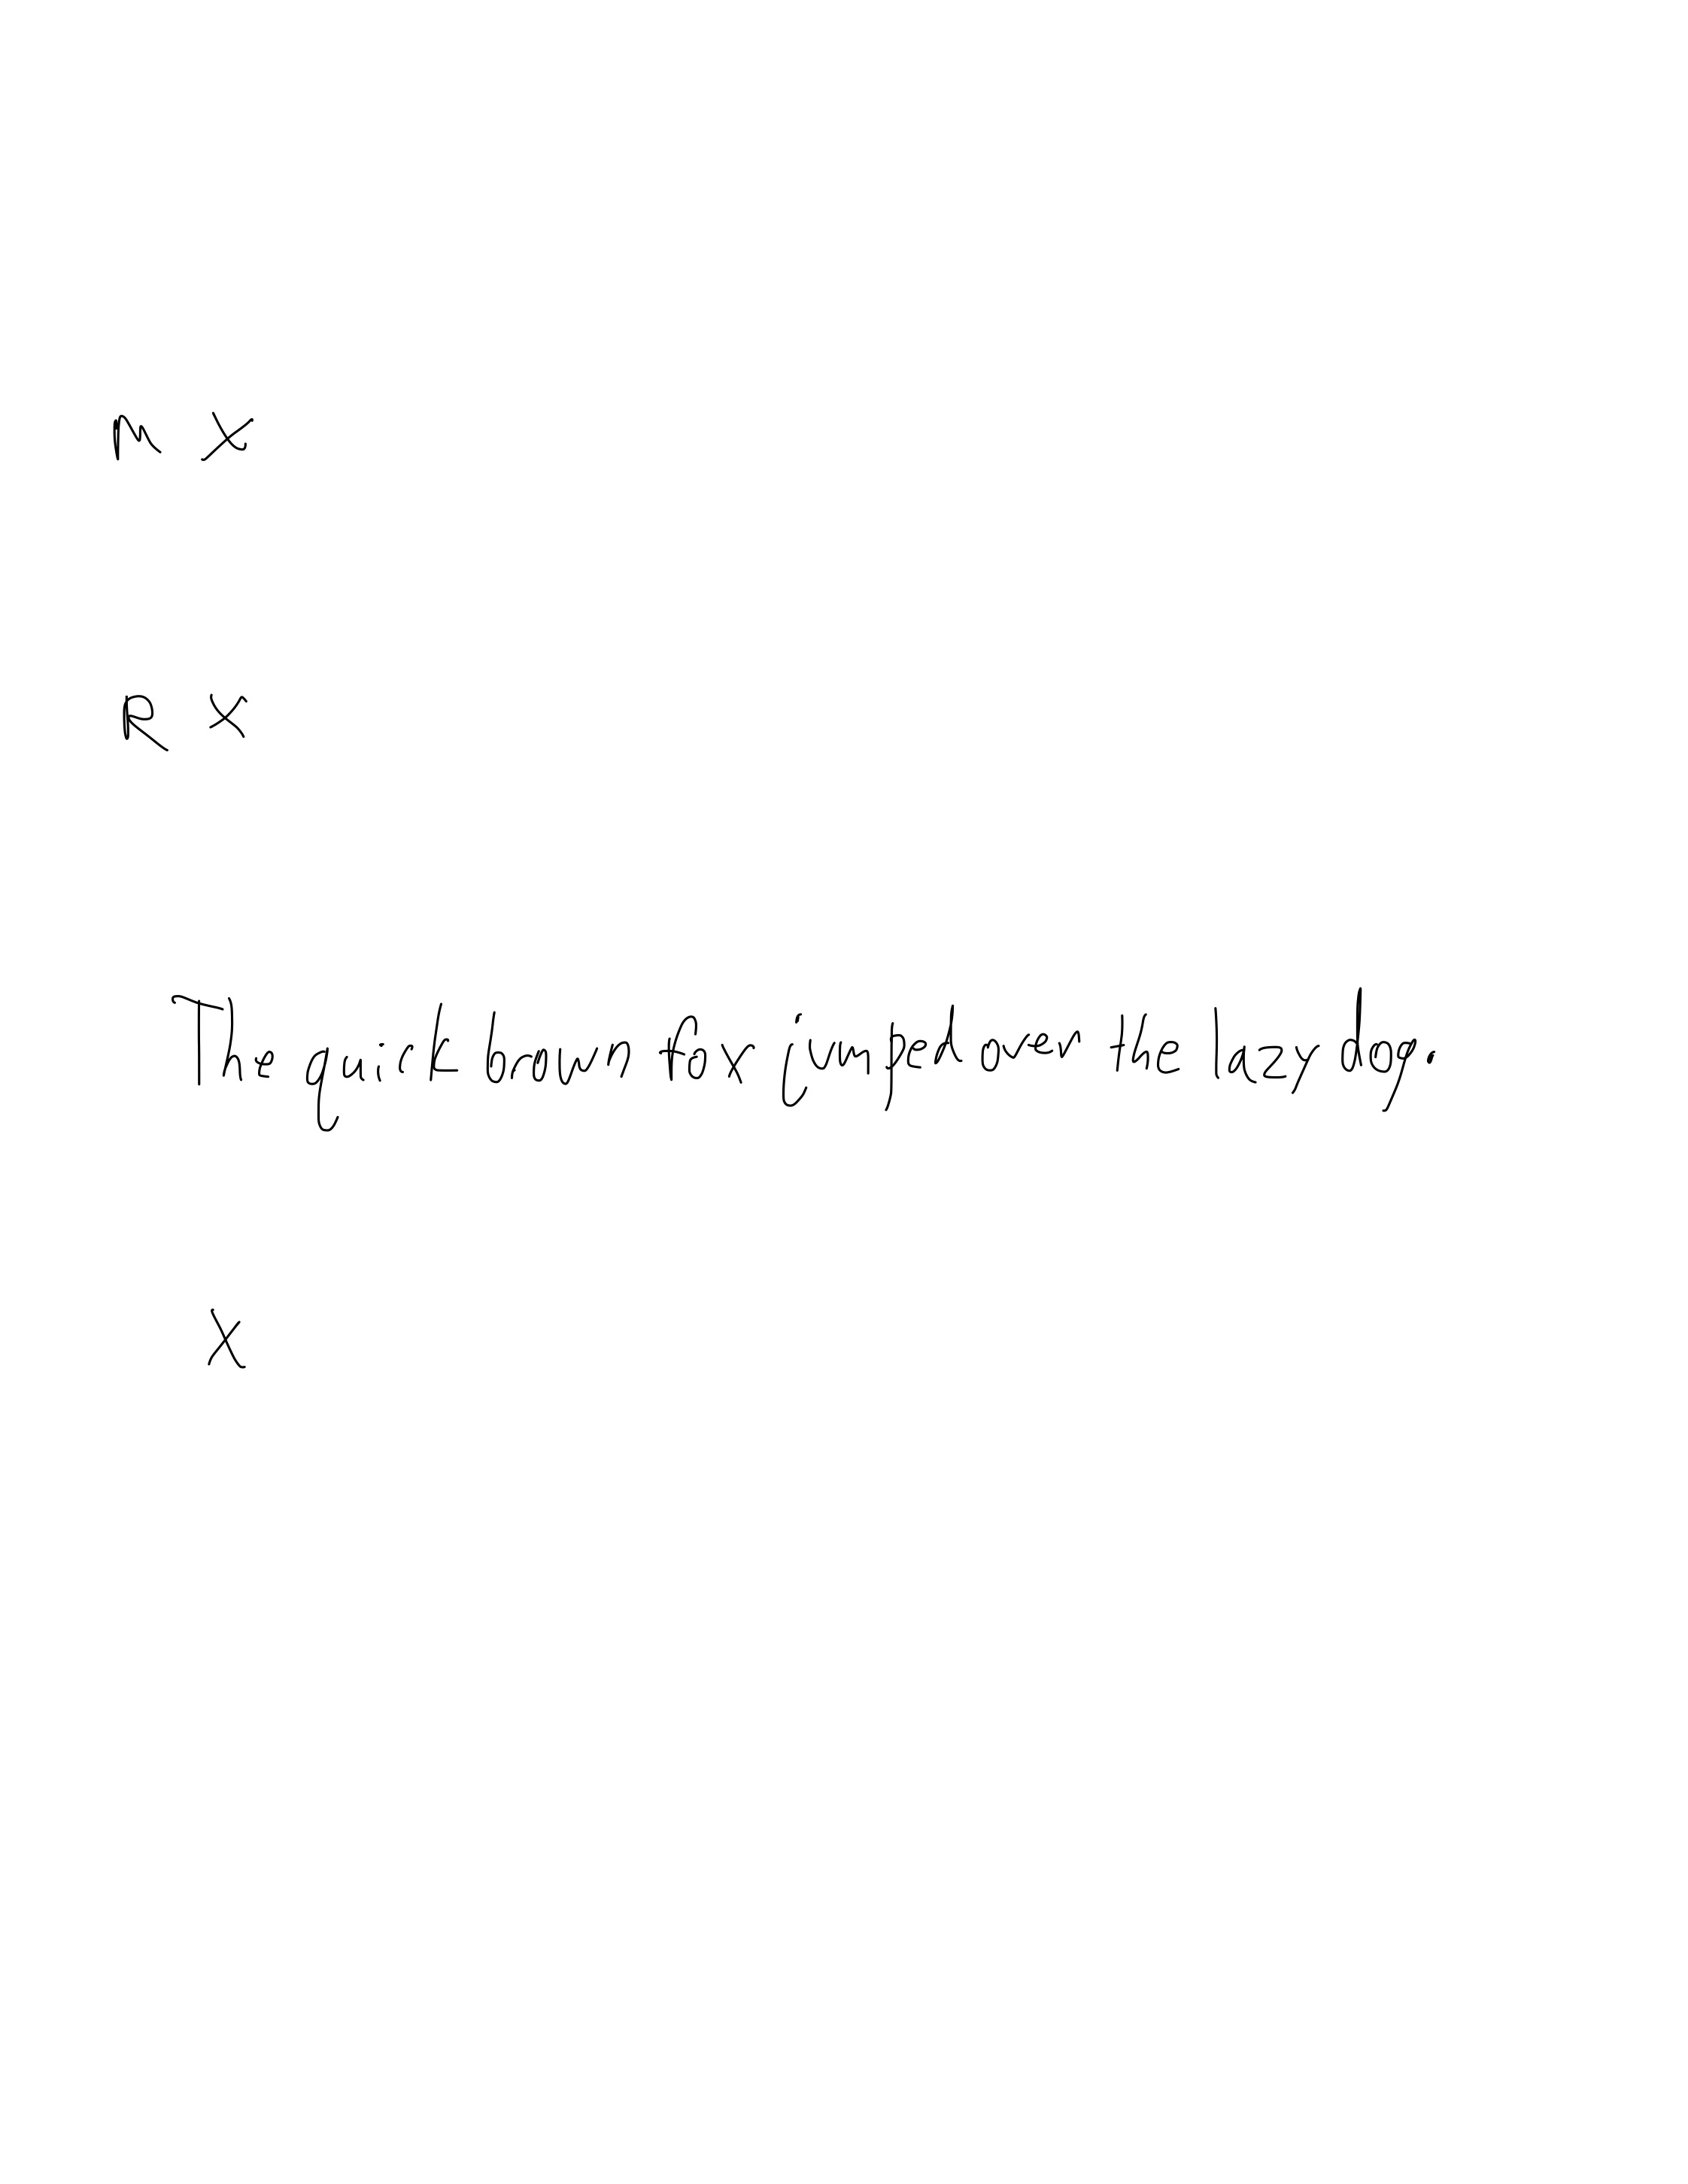 M X
R X
The quick brown fox jumped over the lazy dog.
X